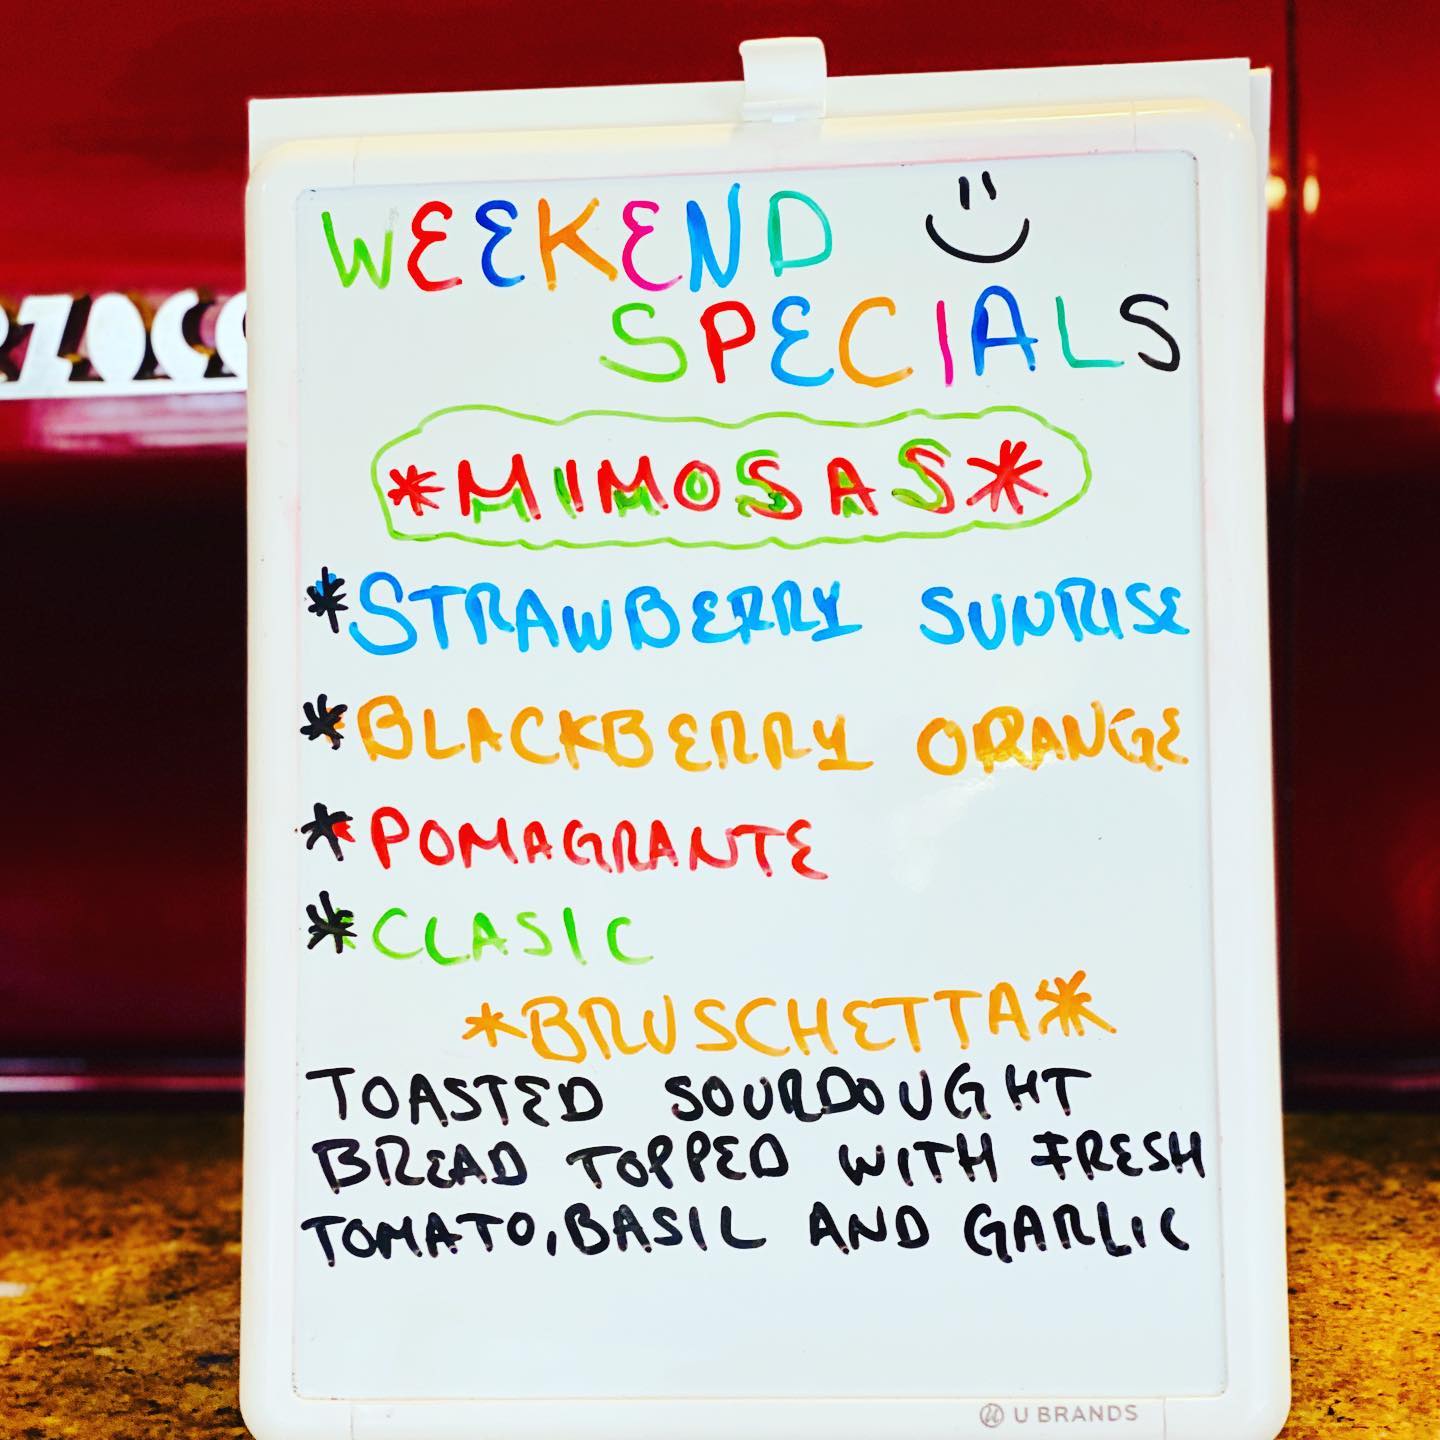 WEEKEND
SPECIALS
*MIMOSAS*
*STRAWBERRY SUNRISE
*BLACKBERRY ORANGE
*POMAGRANTE
*CLASIC
*BRUSCHETTA*
TOASTED SOURDOUGHT
BREAD TOPPED WITH FRESH
TOMATO, BASIL AND GARLIC
U BRANDS